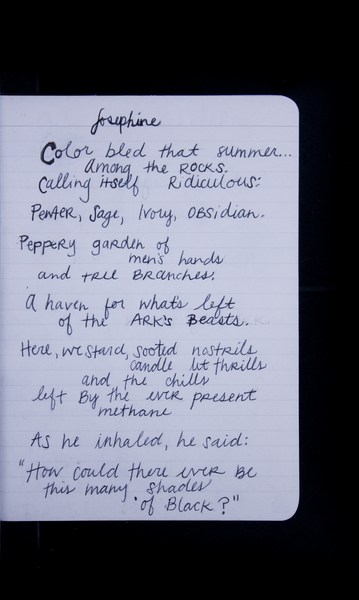 Josephine
Color bled that summer...
Among the ROCKS.
Calling itself Ridiculous:
PEWTER, Sage, Ivory, OBSidian.
Peppery garden of
men's hands
and tree BRanches.
A haven for what's left
of the ARK's Beasts.
Here, we stand, sooted nostrils
candle lit thrills
and the chills
left By the ever present
methane
As he inhaled, he said:
"How could there ever be
this many shades
of Black?"